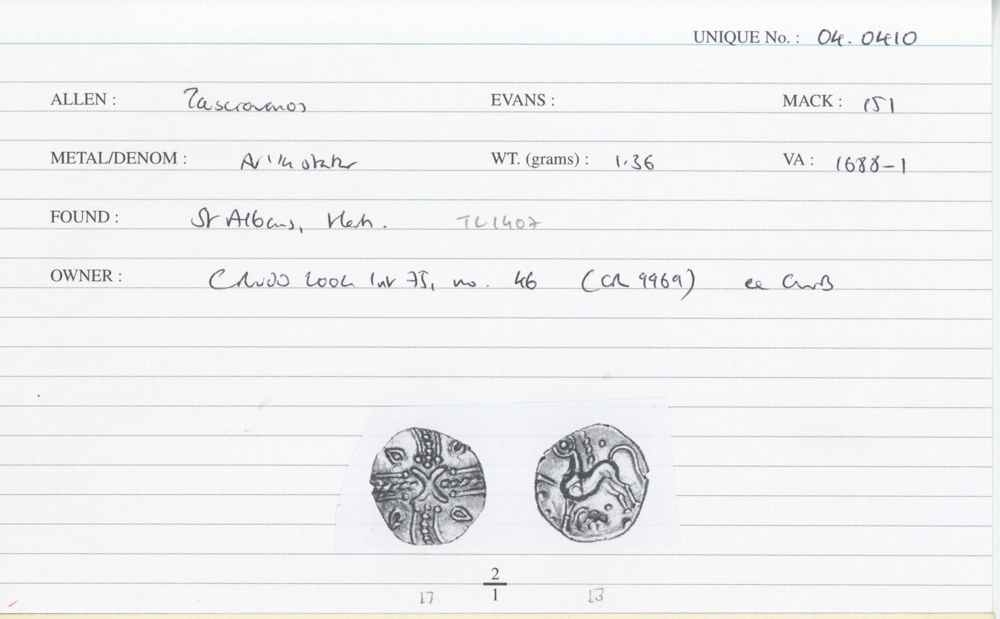 UNIQUE No. : 04.0410
ALLEN : Tasciovanos EVANS : MACK : 151
METAL/DENOM : AV 1/4 stater WT. (grams) : 1.36 VA : 1688-1
FOUND : St Albans, Herts. TL1407
OWNER : 2004 no. 46 (CR 9969) ex
2
1
17 13